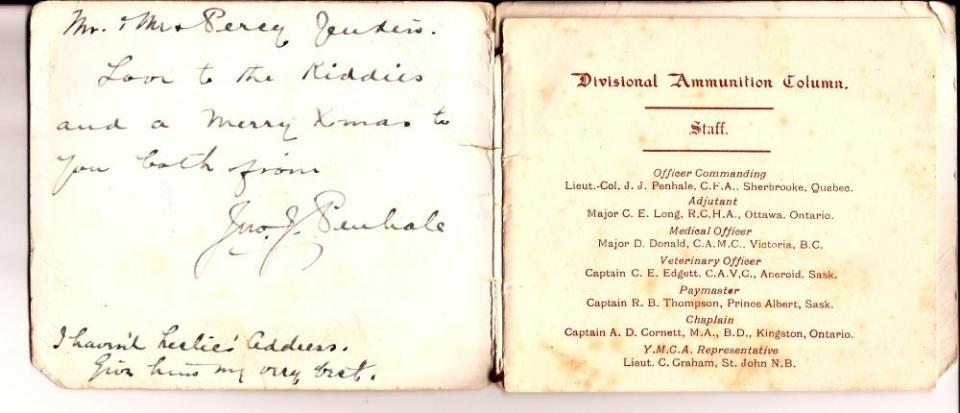 Mr. & Mrs Percy Jenkins.
Love to the Kiddies
and a Merry Xmas to
you both from
Jno. J. Penhale
I haven't Leslie's Address.
Give him my very best.
Divisional Ammunition Column.
Staff.
Officer Commanding
Lieut.-Col. J. J. Penhale, C.F.A., Sherbrooke, Quebec.
Adjutant
Major C. E. Long, R.C.H.A., Ottawa. Ontario.
Medical Officer
Major D. Donald, C.A.M.C., Victoria, B.C.
Veterinary Officer
Captain C. E. Edgett. C.A.V.C., Aneroid. Sask.
Paymaster
Captain R. B. Thompson, Prince Albert, Sask.
Chaplain
Captain A. D. Cornett, M.A., B.D., Kingston, Ontario.
Y.M.C.A. Representative
Lieut. C. Graham, St. John N.B.